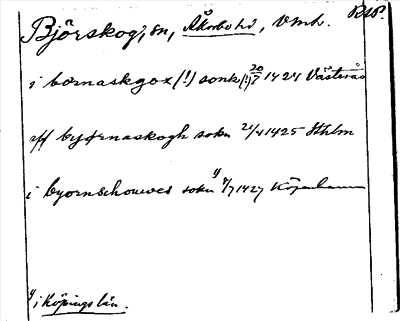 Björskog, sn, Åkerbo hd, Vml. RAP.
i børnaskgox (!) sonk (!) 20/7 1424 Västerås
aff byørnaskogh sokn 21/4 1425 Sthlm
i byornschouwes sokn 4/7 1427 Köpenhamn
i Köpings län.